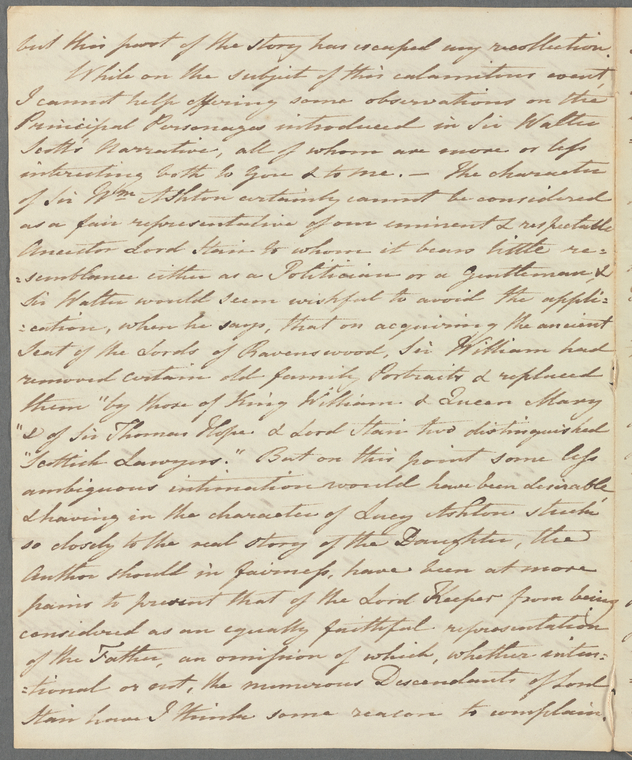 but this part of the story has escaped my recollection.
While on the subject of this calamitous event,
I cannot help offering some observations on the
Principal Personages introduced in Sir Walter
Scott's Narrative, all of whom are more or less
interesting both to you & to me. — The character
of Sir Wm Ashton certainly cannot be considered
as a fair representative of our eminent & respectable
Ancestor Lord Stair to whom it bears little re=
=semblance either as a Politician or a Gentleman, &
Sir Walter would seem wishful to avoid the appli=
=cation, when he says, that on acquiring the ancient
Seat of the Lords of Ravenswood, Sir William had
removed certain old family Portraits & replaced
them "by those of King William & Queen Mary
"& of Sir Thomas Hope & Lord Stair two distinguished
"Scottish Lawyers." But on this point some less
ambiguous intimation would have been desirable
& having in the character of Lucy Ashton stuck
so closely to the real story of the Daughter, the
Author should in fairness, have been at more
pains to present that of the Lord Keeper from being
considered as an equally faithful representation
of the Father, an omission of which, whether inten=
=tional or not, the numerous Descendants of Lord
Stair have I think some reason to complain.